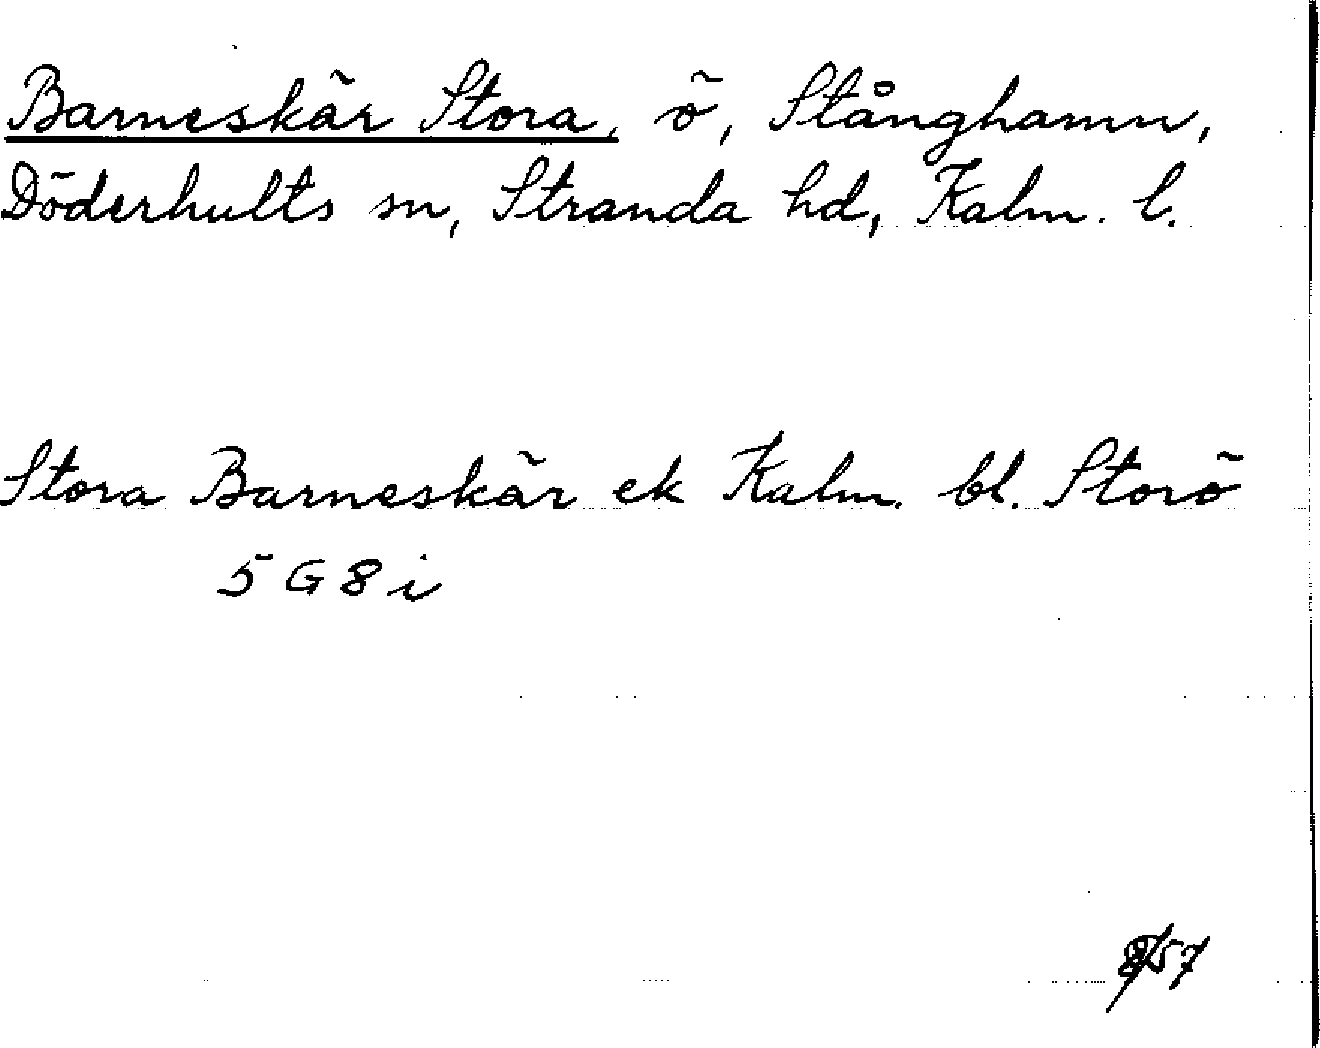 Barneskär Stora, ö, Stånghamn,
Döderhults sn, Stranda hd, Kalm. l.
Stora Barneskär ek Kalm. bl. Storö
5 G 8 i